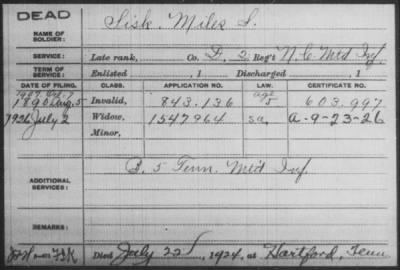 DEAD
NAME OF SOLDIER:
Sisk, Miles S.
SERVICE:
Late rank, Co. D, 2 Reg't N.C. Mtd Inf.
TERM OF SERVICE:
Enlisted , 1 Discharged , 1
DATE OF FILING. CLASS. APPLICATION NO. LAW. CERTIFICATE NO.
1890 Aug. 5 Invalid, 843.136 age 5 603.997
1926 July 2 Widow, 1547964 A-9-23-26
Minor,
ADDITIONAL SERVICES:
B. 5 Tenn. Mtd Inf.
REMARKS:
Died July 22, 1924, at Hartford, Tenn